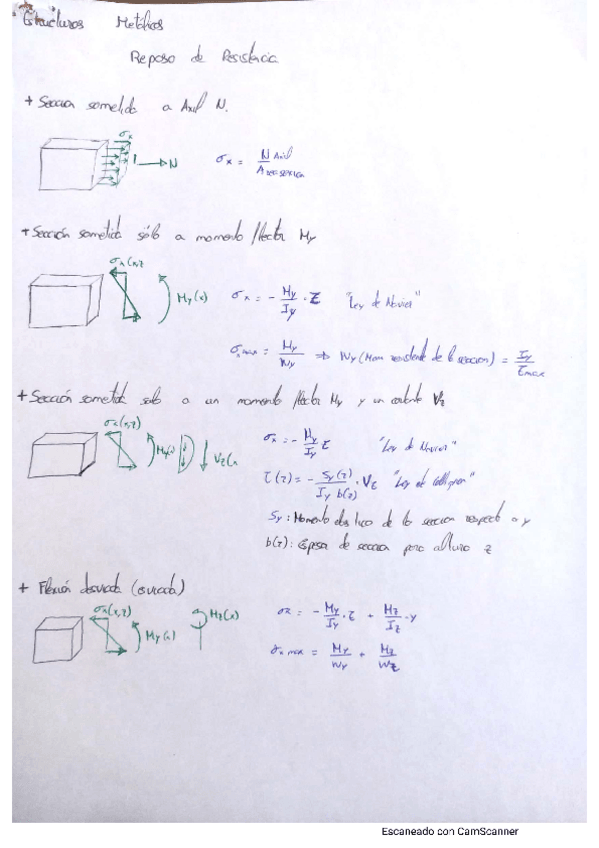 Estructuras Metálicas
Repaso de Resistencia
+ Sección sometida a Axil N.
σx
N
σx = N Axil / A rea sección
+ Sección sometida sólo a momento flector My
σx(x,z
My(x)
σx = - My/Iy · z "Ley de Navier"
σx max = My/Wy ⇒ Wy (Mom resistente de la sección) = Iy/zmax
+ Sección sometida solo a un momento flector My y un cortante Vz
σx(x,z)
My(x)
Vz(x
σx = - My/Iy z "Ley de Navier"
τ(z) = - Sy(z)/Iy b(z) · Vz "Ley de Collignon"
Sy: Momento estático de la sección respecto a y
b(z): Espesor de sección para altura z
+ Flexión desviada (esviada)
σx(x,z)
My(x)
Mz(x)
σx = - My/Iy · z + Mz/Iz · y
σx max = My/Wy + Mz/Wz
Escaneado con CamScanner